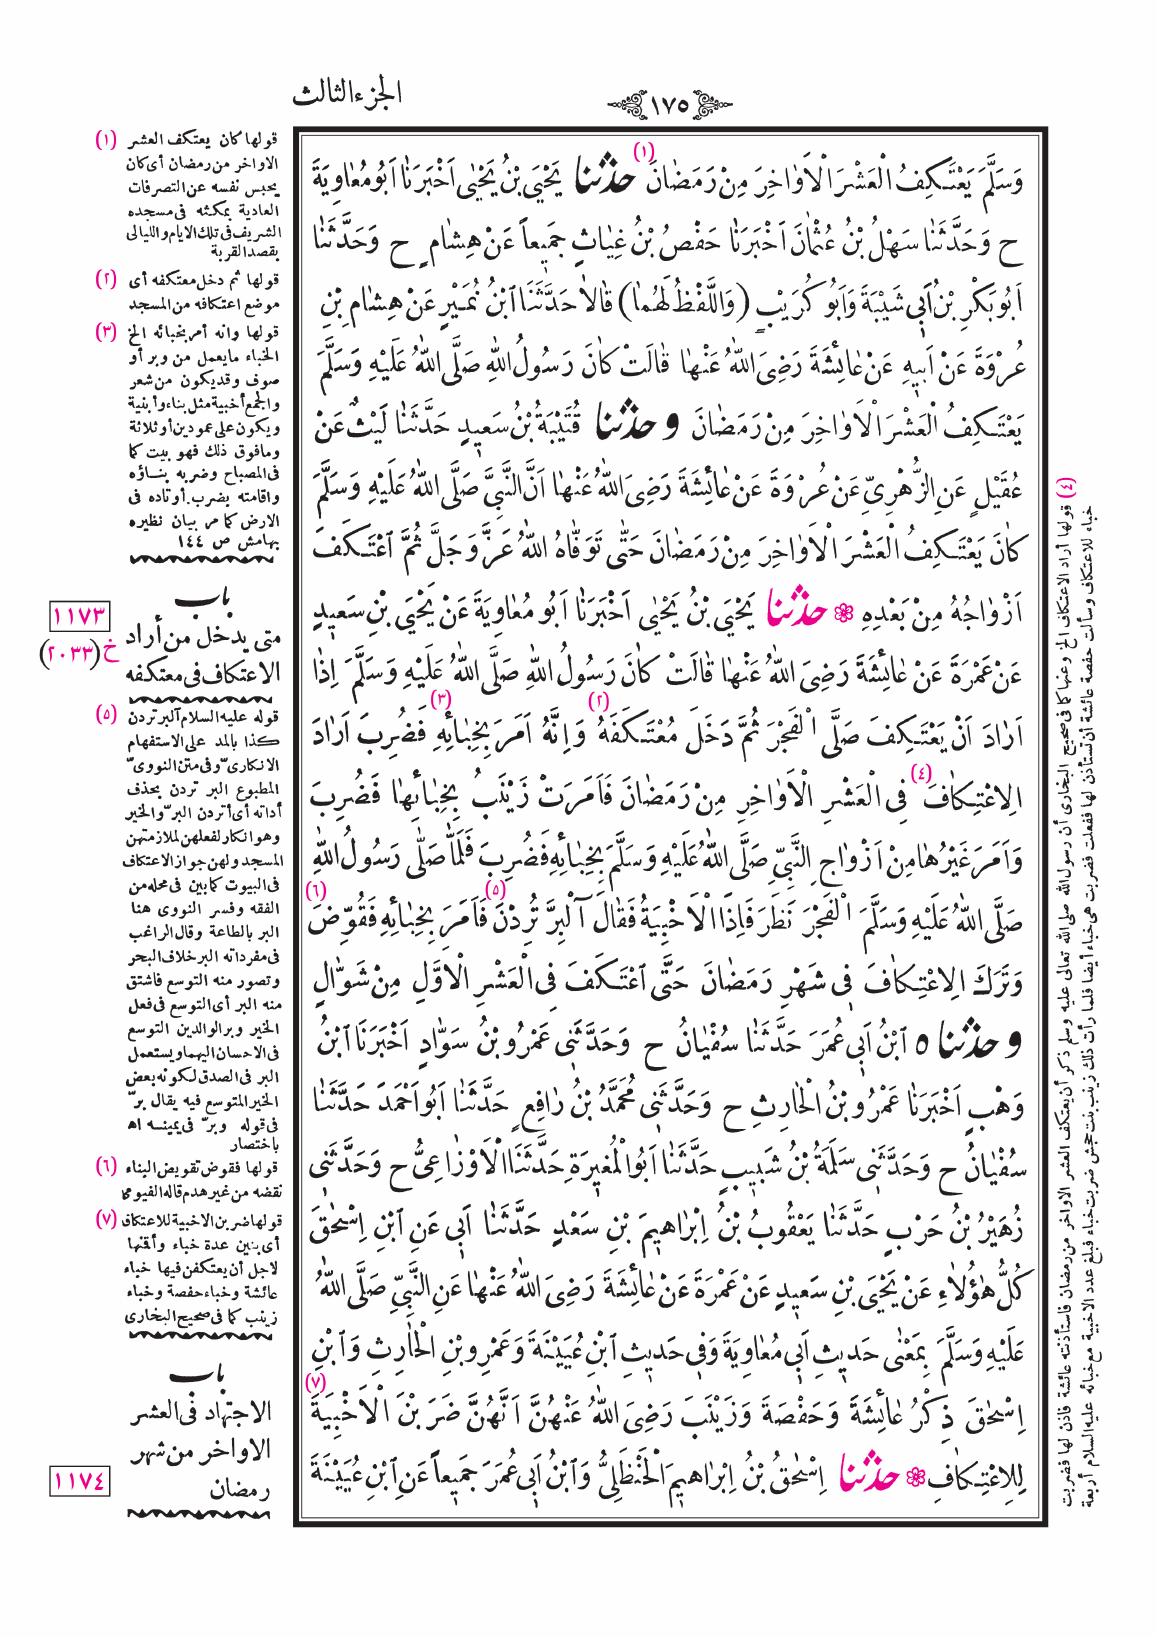 الجزء الثالث
١٧٥
وَسَلَّمَ يَعْتَكِفُ الْعَشْرَ الْاَوَاخِرَ مِنْ رَمَضَانَ (١) حدثنا يَحْيَى بْنُ يَحْيٰى اَخْبَرَنَا اَبُو مُعَاوِيَةَ
ح وَحَدَّثَنَا سَهْلُ بْنُ عُثْمَانَ اَخْبَرَنَا حَفْصُ بْنُ غِيَاثٍ جَمِيعاً عَنْ هِشَامٍ ح وَحَدَّثَنَا
اَبُو بَكْرِ بْنُ اَبِي شَيْبَةَ وَاَبُو كُرَيْبٍ (وَاللَّفْظُ لَهُمَا) قَالَا حَدَّثَنَا ابْنُ نُمَيْرٍ عَنْ هِشَامِ بْنِ
عُرْوَةَ عَنْ اَبِيهِ عَنْ عَائِشَةَ رَضِيَ اللهُ عَنْهَا قَالَتْ كَانَ رَسُولُ اللهِ صَلَّى اللهُ عَلَيْهِ وَسَلَّمَ
يَعْتَكِفُ الْعَشْرَ الْاَوَاخِرَ مِنْ رَمَضَانَ وحدثنا قُتَيْبَةُ بْنُ سَعِيدٍ حَدَّثَنَا لَيْثٌ عَنْ
عُقَيْلٍ عَنِ الزُّهْرِيِّ عَنْ عُرْوَةَ عَنْ عَائِشَةَ رَضِيَ اللهُ عَنْهَا اَنَّ النَّبِيَّ صَلَّى اللهُ عَلَيْهِ وَسَلَّمَ
كَانَ يَعْتَكِفُ الْعَشْرَ الْاَوَاخِرَ مِنْ رَمَضَانَ حَتّٰى تَوَفَّاهُ اللهُ عَزَّ وَجَلَّ ثُمَّ اعْتَكَفَ
اَزْوَاجُهُ مِنْ بَعْدِهِ ❁ حدثنا يَحْيَى بْنُ يَحْيٰى اَخْبَرَنَا اَبُو مُعَاوِيَةَ عَنْ يَحْيَى بْنِ سَعِيدٍ
عَنْ عَمْرَةَ عَنْ عَائِشَةَ رَضِيَ اللهُ عَنْهَا قَالَتْ كَانَ رَسُولُ اللهِ صَلَّى اللهُ عَلَيْهِ وَسَلَّمَ اِذَا
اَرَادَ اَنْ يَعْتَكِفَ صَلَّى الْفَجْرَ ثُمَّ دَخَلَ مُعْتَكَفَهُ (٢) وَاِنَّهُ اَمَرَ بِخِبَائِهِ (٣) فَضُرِبَ اَرَادَ
الِاعْتِكَافَ (٤) فِي الْعَشْرِ الْاَوَاخِرِ مِنْ رَمَضَانَ فَاَمَرَتْ زَيْنَبُ بِخِبَائِهَا فَضُرِبَ
وَاَمَرَ غَيْرُهَا مِنْ اَزْوَاجِ النَّبِيِّ صَلَّى اللهُ عَلَيْهِ وَسَلَّمَ بِخِبَائِهِ فَضُرِبَ فَلَمَّا صَلَّى رَسُولُ اللهِ
صَلَّى اللهُ عَلَيْهِ وَسَلَّمَ الْفَجْرَ نَظَرَ فَاِذَا الْاَخْبِيَةُ فَقَالَ آلْبِرَّ تُرِدْنَ (٥) فَاَمَرَ بِخِبَائِهِ فَقُوِّضَ (٦)
وَتَرَكَ الِاعْتِكَافَ فِي شَهْرِ رَمَضَانَ حَتَّى اعْتَكَفَ فِي الْعَشْرِ الْاَوَّلِ مِنْ شَوَّالٍ
وحدثناه ابْنُ اَبِي عُمَرَ حَدَّثَنَا سُفْيَانُ ح وَحَدَّثَنِي عَمْرُو بْنُ سَوَّادٍ اَخْبَرَنَا ابْنُ
وَهْبٍ اَخْبَرَنَا عَمْرُو بْنُ الْحَارِثِ ح وَحَدَّثَنِي مُحَمَّدُ بْنُ رَافِعٍ حَدَّثَنَا اَبُو اَحْمَدَ حَدَّثَنَا
سُفْيَانُ ح وَحَدَّثَنِي سَلَمَةُ بْنُ شَبِيبٍ حَدَّثَنَا اَبُو الْمُغِيرَةِ حَدَّثَنَا الْاَوْزَاعِيُّ ح وَحَدَّثَنِي
زُهَيْرُ بْنُ حَرْبٍ حَدَّثَنَا يَعْقُوبُ بْنُ اِبْرَاهِيمَ بْنِ سَعْدٍ حَدَّثَنَا اَبِي عَنِ ابْنِ اِسْحٰقَ
كُلُّ هٰؤُلَاءِ عَنْ يَحْيَى بْنِ سَعِيدٍ عَنْ عَمْرَةَ عَنْ عَائِشَةَ رَضِيَ اللهُ عَنْهَا عَنِ النَّبِيِّ صَلَّى اللهُ
عَلَيْهِ وَسَلَّمَ بِمَعْنٰى حَدِيثِ اَبِي مُعَاوِيَةَ وَفِي حَدِيثِ ابْنِ عُيَيْنَةَ وَعَمْرِو بْنِ الْحَارِثِ وَابْنِ
اِسْحٰقَ ذِكْرُ عَائِشَةَ وَحَفْصَةَ وَزَيْنَبَ رَضِيَ اللهُ عَنْهُنَّ اَنَّهُنَّ ضَرَبْنَ الْاَخْبِيَةَ (٧)
لِلِاعْتِكَافِ ❁ حدثنا اِسْحٰقُ بْنُ اِبْرَاهِيمَ الْحَنْظَلِيُّ وَابْنُ اَبِي عُمَرَ جَمِيعاً عَنِ ابْنِ عُيَيْنَةَ
(١) قولها كان يعتكف العشر
الاواخر من رمضان أى كان
يحبس نفسه عن التصرفات
العادية بمكثه فى مسجده
الشريف فى تلك الايام والليالى
بقصد القربة
(٢) قولها ثم دخل معتكفه أى
موضع اعتكافه من المسجد
(٣) قولها وانه أمر بخبائه الخ
الخباء ما يعمل من وبر أو
صوف وقد يكون من شعر
والجمع أخبية مثل بناء وأبنية
ويكون على عمودين أو ثلاثة
وما فوق ذلك فهو بيت كما
فى المصباح وضربه بناؤه
واقامته بضرب أوتاده فى
الارض كما مر بيان نظيره
بهامش ص ١٤٤
باب
متى يدخل من أراد
الاعتكاف فى معتكفه
١١٧٣
خ (٢٠٣٣)
(٥) قوله عليه السلام آلبر تردن
كذا بالمد على الاستفهام
الانكارىّ وفى متن النووىّ
المطبوع البر تردن بحذف
أداته أى أتردن البرّ والخير
وهو انكار لفعلهن لملازمتهن
المسجد ولهن جواز الاعتكاف
فى البيوت كما بين فى محله من
الفقه وفسر النووى هنا
البر بالطاعة وقال الراغب
فى مفرداته البر خلاف البحر
وتصور منه التوسع فاشتق
منه البر أى التوسع فى فعل
الخير وبر الوالدين التوسع
فى الاحسان اليهما ويستعمل
البر فى الصدق لكونه بعض
الخير المتوسع فيه يقال برّ
فى قوله وبرّ فى يمينه اه
باختصار
(٦) قولها فقوض تقويض البناء
نقضه من غير هدم قاله الفيومى
(٧) قولها ضربن الاخبية للاعتكاف
أى بنين عدة خباء وأقمنها
لاجل أن يعتكفن فيها خباء
عائشة وخباء حفصة وخباء
زينب كما فى صحيح البخارى
باب
الاجتهاد فى العشر
الاواخر من شهر
رمضان
١١٧٤
(٤) قولها أراد الاعتكاف الخ وعنها كما فى صحيح البخارى أن رسول الله صلى الله تعالى عليه وسلم ذكر أن يعتكف العشر الاواخر من رمضان فاستأذنته عائشة فاذن لها فضربت
خباء للاعتكاف وسألت حفصة عائشة أن تستأذن لها ففعلت فضربت هى خباء أيضا فلما رأت ذلك زينب بنت جحش ضربت خباء فبلغ عدد الاخبية مع خبائه عليه السلام أربعة